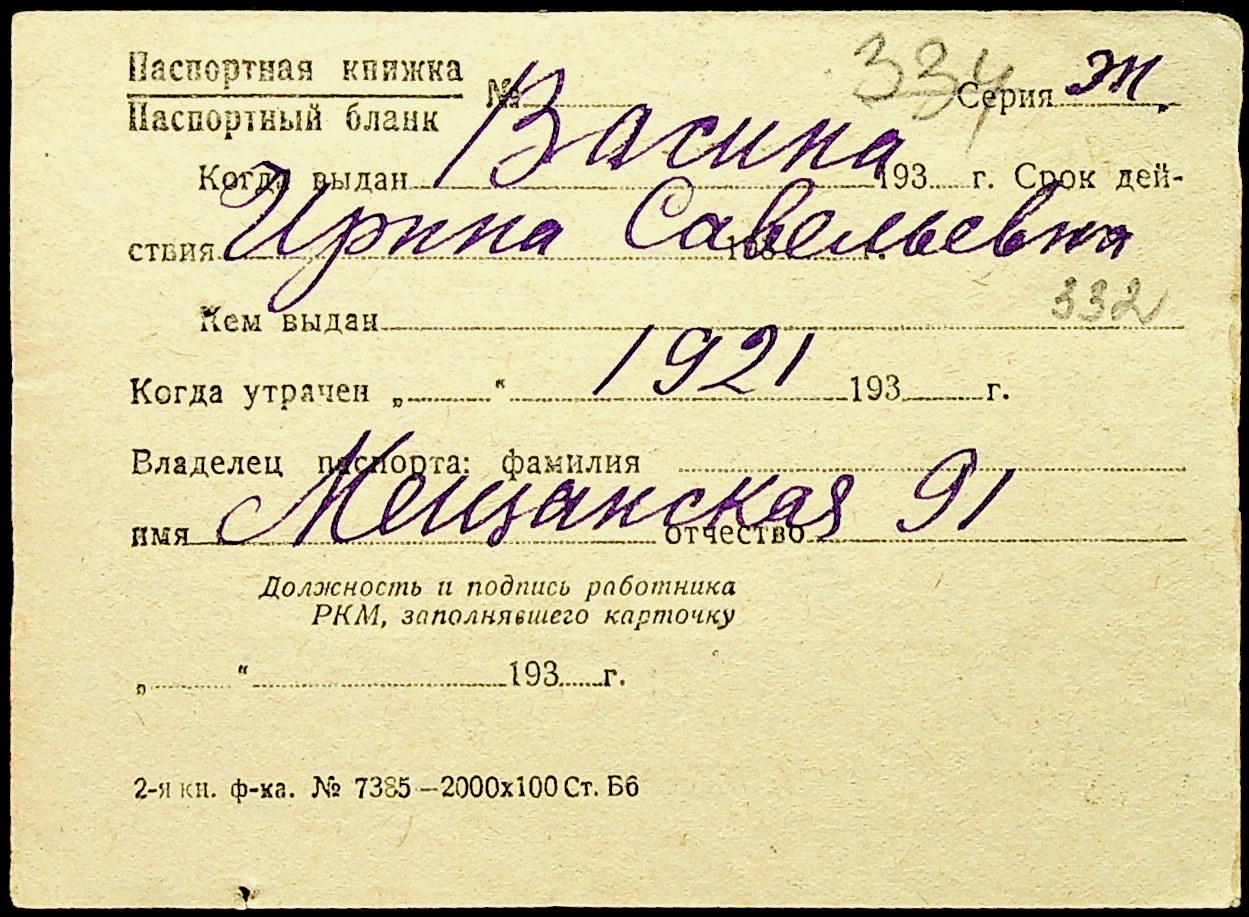 Паспортная книжка
Паспортный бланк № 334 Серия эт.
Васина
Когда выдан 193 г. Срок дей-
Ирина Савельевна
ствия 193 г.
332
Кем выдан
1921
Когда утрачен „ “ 193 г.
Владелец паспорта: фамилия
Мещанская 91
имя отчество
Должность и подпись работника
РКМ, заполнявшего карточку
„ “ 193 г.
2-я кн. ф-ка. № 7385—2000х100 Ст. Б6